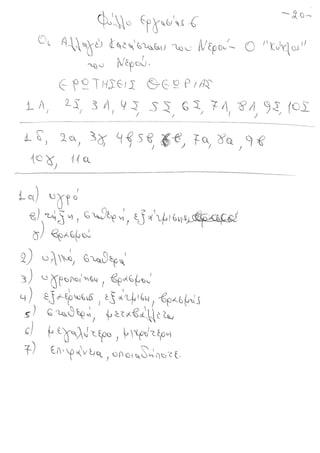 -20-
Φύλλο Εργασίας 6
Οι Αλλαγές Κατάστασης του Νερού - Ο "Κύκλος"
του Νερού.
ΕΡΩΤΗΣΕΙΣ ΘΕΩΡΙΑΣ
1Λ, 2Σ, 3Λ, 4Σ, 5Σ, 6Σ, 7Λ, 8Λ, 9Σ, 10Σ
1δ, 2α, 3γ, 4β, 5β, 6β, 7α, 8α, 9β
10γ, 11α
1α) υγρό
β) τήξη, σταθερή, εξάτμιση,
γ) βρασμού
2) υλικό, σταθερή
3) υγροποίηση, βρασμού
4) εξαέρωση, εξάτμιση, βρασμός
5) σταθερή, μεταβάλλεται
6) μεγαλύτερο, μικρότερη
7) επιφάνεια, οποιαδήποτε.